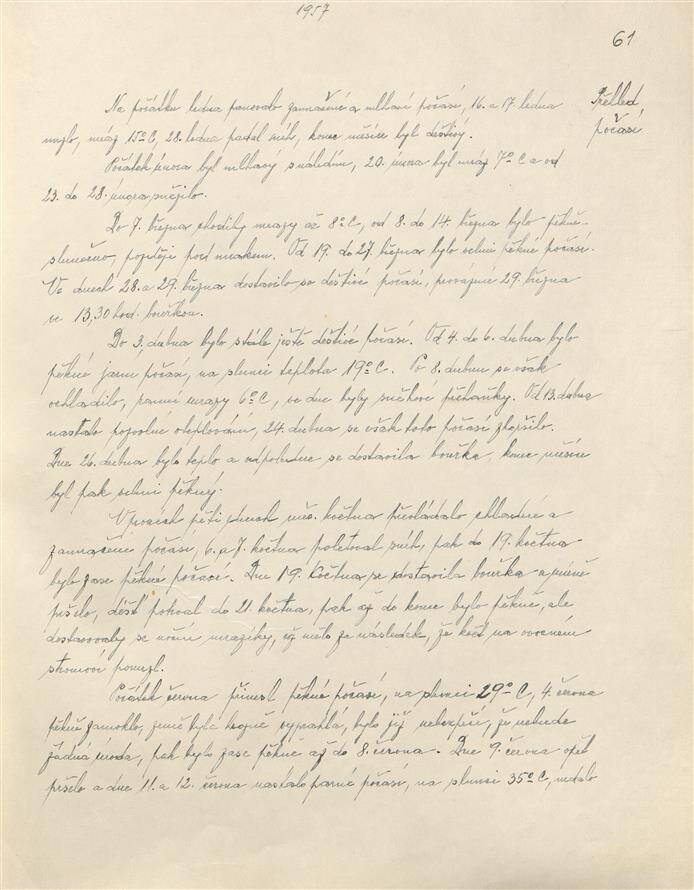 1957
61
Přehled
počasí
Na počátku ledna panovalo zamračené a mlhavé počasí, 16. a 17. ledna
mrzlo, mráz 15°C, 28. ledna padal sníh, konec měsíce byl deštivý.
Počátek února byl mlhavý s náledím, 20. února byl mráz 7°C a od
23. do 28. února sněžilo.
Do 7. března chodily mrazy až 8°C, od 8. do 14. března bylo pěkně
slunečno, později pod mrakem. Od 19. do 27. března bylo velmi pěkné počasí.
Ve dnech 28. a 29. března dostavilo se deštivé počasí, provázené 29. března
ve 13,30 hod. bouřkou.
Do 3. dubna bylo stále ještě deštivé počasí. Od 4. do 6. dubna bylo
pěkné jarní počasí, na slunci teplota 19°C. Po 8. dubnu se však
ochladilo, ranní mrazy 6°C, ve dne byly sněhové přeháňky. Od 13. dubna
nastalo pozvolné oteplování, 24. dubna se však toto počasí zhoršilo.
Dne 26. dubna bylo teplo a odpoledne se dostavila bouřka, konec měsíce
byl pak velmi pěkný.
V prvních pěti dnech měs. května převládalo chladné a
zamračené počasí, 6. a 7. května poletoval sníh, pak do 19. května
bylo zase pěkné počasí. Dne 19. května se dostavila bouřka a mírně
pršelo, déšť potrval do 21. května, pak až do konce bylo pěkně, ale
dostavovaly se noční mrazíky, což mělo za následek, že květ na ovocném
stromoví pomrzl.
Počátek června přinesl pěkné počasí, na slunci 29°C, 4. června
pěkně zamoklo, země byla hrozně vyprahlá, bylo již nebezpečí, že nebude
žádná úroda, pak bylo zase pěkně až do 8. června. Dne 9. června opět
pršelo a dne 11. a 12. června nastalo parné počasí, na slunci 35°C, nedalo